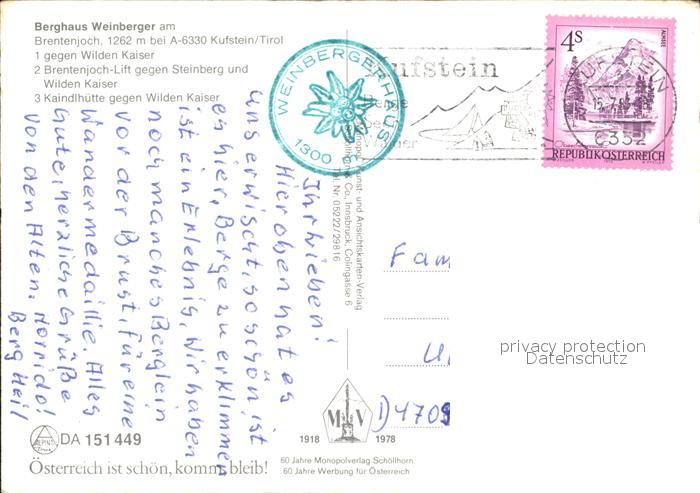 Berghaus Weinberger am
Brentenjoch, 1262 m bei A-6330 Kufstein/Tirol
1 gegen Wilden Kaiser
2 Brentenjoch-Lift gegen Steinberg und
Wilden Kaiser
3 Kaindlhütte gegen Wilden Kaiser
WEINBERGERHAUS
1300
ufstein
4s
ALMSEE
REPUBLIK ÖSTERREICH
KUFSTEIN
6332
Ihr Lieben!
Hier oben hat es
uns erwischt, so schön ist
es hier, Berge zu erklimmen
ist ein Erlebnis, Wir haben
noch manches Berglein
vor der Brust, für eine
Wandermedaille. Alles
Gute, herzliche Grüße
von den Alten. Horrido!
Berg Heil
Kunst- und Ansichtskarten-Verlag
& Co, Innsbruck, Colingasse 6
Tel. Nr. 05222/29816
Fam
D 4709
privacy protection
Datenschutz
M V
1918 1978
ALPINE
DA 151 449
Österreich ist schön, komm bleib!
60 Jahre Monopolverlag Schöllhorn
60 Jahre Werbung für Österreich